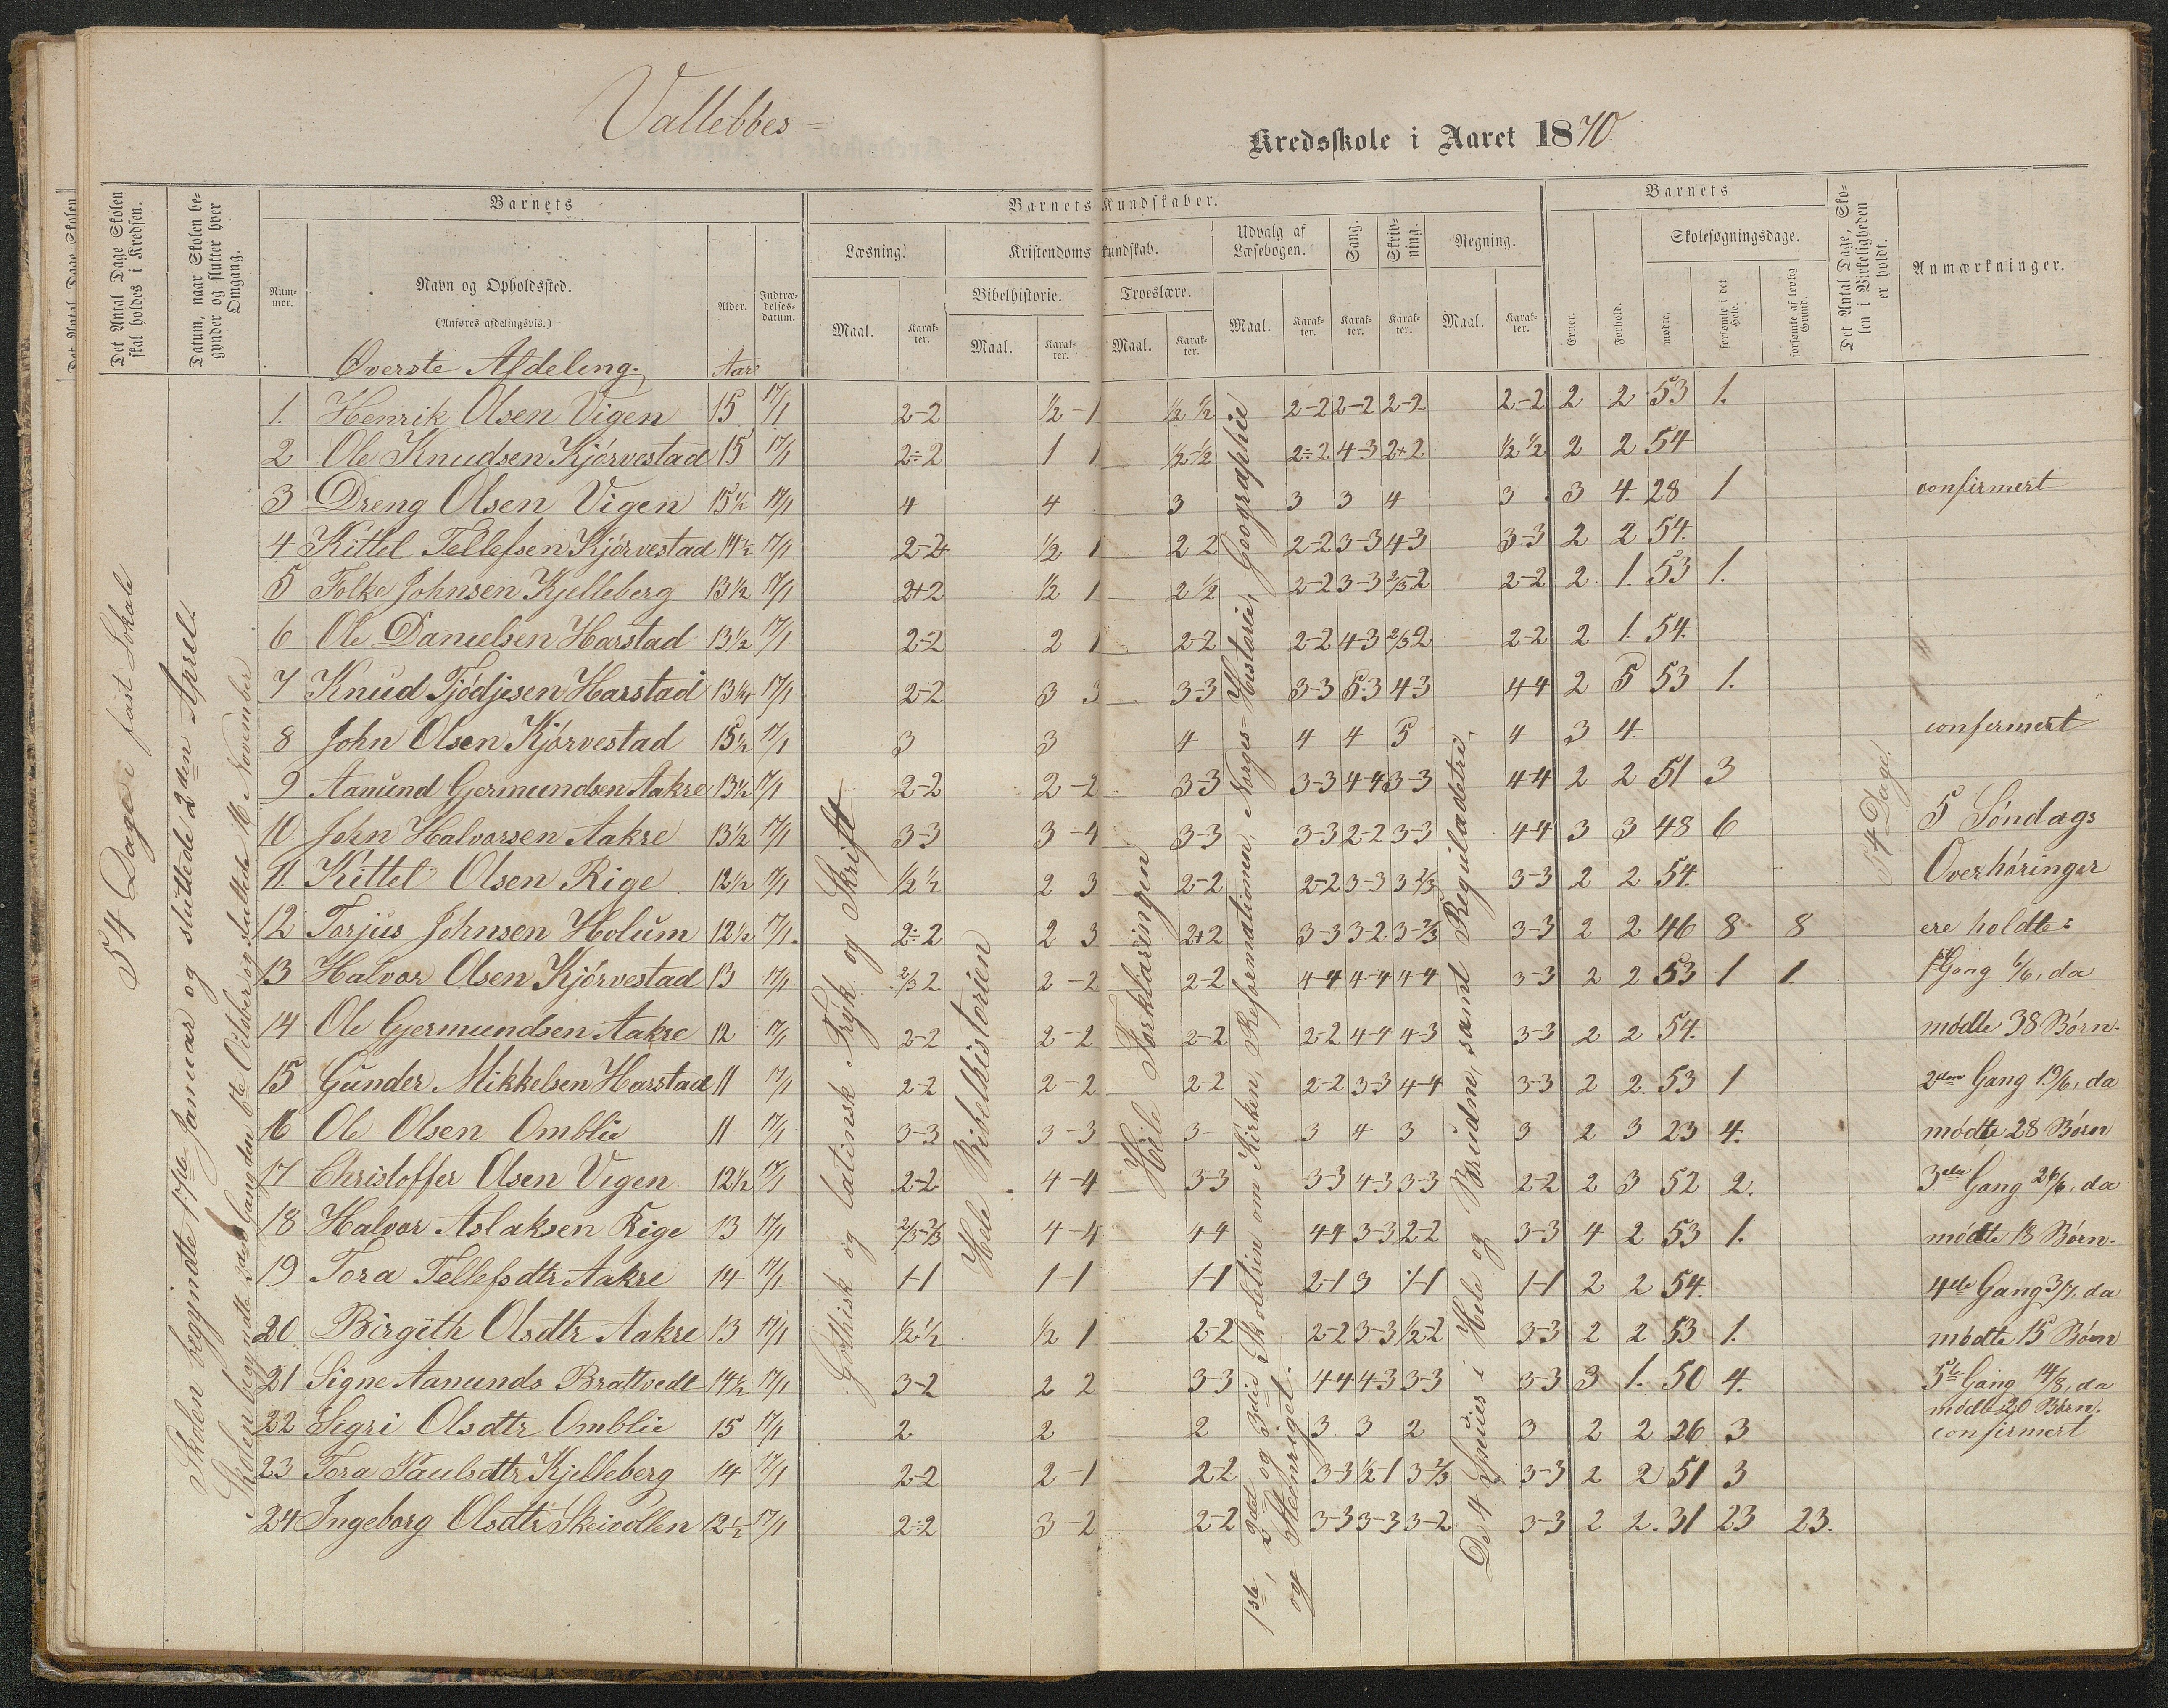 Vallebbes=
Kredsskole i Aaret 1870.
Det Antal Dage Skolen skal holdes i Kredsen.
Datum, naar Skolen begynder og slutter hver Omgang.
Barnets
Nummer.
Navn og Opholdssted.
(Anføres afdelingsvis.)
Alder.
Indtrædelsesdatum.
Barnets Kundskaber.
Læsning.
Kristendomskundskab.
Udvalg af Læsebogen.
Sang.
Skrivning.
Regning.
Bibelhistorie.
Troeslære.
Maal. Karakter. Maal. Karakter. Maal. Karakter. Maal. Karakter. Karakter. Karakter. Maal. Karakter.
Barnets
Evner.
Forhold.
Skolesøgningsdage.
mødte.
forsømte i det Hele.
forsømte af lovlig Grund.
Det Antal Dage, Skolen i Virkeligheden er holdt.
Anmærkninger.
Øverste Afdeling. Aar
1. Henrik Olsen Vigen 15 17/1 2-2 1/2-1 1/2 1/2 2-2 2-2 2-2 2-2 2 2 53 1.
2 Ole Knudsen Kjörvestad 15 17/1 2÷2 1 1 1/2-1/2 2÷2 4-3 2+2 1/2 1/2 2 2 54
3 Dreng Olsen Vigen 15 1/2 17/1 4 4 3 3 3 4 3 3 4. 28 1 confirmert
4 Kittel Tellefsen Kjörvestad 14 1/2 17/1 2-2+ 1/2 1 2 2 2-2 3-3 4-3 3-3 2 2 54.
5 Folke Johnsen Kjelleberg 13 1/2 17/1 2+2 1/2 1 2 1/2 2-2 3-3 2/3-2 2-2 2 1. 53 1.
6 Ole Danielsen Harstad 13 1/2 17/1 2-2 2 1 2-2 2-2 4-3 2/3 2 2-2 2 1. 54.
7 Knud Tjödjesen Harstad 13 1/4 17/1 2-2 3 3 3-3 3-3 5-3 4-3 4-4 2 5 53 1.
8 John Olsen Kjörvestad 15 1/2 17/1 3 3 4 4 4 5 4 3 4. confirmert
9 Aanund Gjermundsen Aakre 13 1/2 17/1 2-2 2-2 3-3 3-3 4-4 3-3 4-4 2 2 51 3
10. John Halvorsen Aakre 13 1/2 17/1 3-3 3-4 3-3 3-3 2-2 3-3 4-4 3 3 48 6 5 Söndags
11. Kittel Olsen Rige 12 1/2 17/1 1/2 1/2 2 3 2-2 2-2 3-3 3 2/3 3-3 2 2 54. Overhöringer
12 Torjus Johnsen Holum 12 1/2 17/1 2÷2 2 3 2+2 3-3 3-2 3-2/3 3-3 2 2 46 8 8 ere holdte:
13 Halvor Olsen Kjörvestad 13 17/1 2/3 2 2-2 2-2 4-4 4-4 4-4 3-3 2 2 53 1 1. 1st Gang 6/6, da
14 Ole Gjermundsen Aakre 12 17/1 2-2 2-2 2-2 2-2 4-4 4-3 3-3 2 2 54. mödte 38 Börn.
15 Gunder Mikkelsen Harstad 11 17/1 2-2 2-2 2-2 2-2 3-3 4-4 3-3 2 2. 53 1 2den Gang 19/6, da
16 Ole Olsen Omblie 11 17/1 3-3 3-3 3- 3 4 3 3 2 3 23 4. mödte 28 Börn
17 Christoffer Olsen Vigen 12 1/2 17/1 2-2 4-4 3-3 3-3 4-3 3-3 2-2 2 3 52 2. 3die Gang 26/6, da
18 Halvor Aslaksen Rige 13 17/1 2/3-2/3 4-4 4-4 4-4 3-3 2-2 3-3 4 2 53 1. mödte 18 Börn.
19 Tora Tellefsdtr Aakre 14 17/1 1-1 1-1 1-1 2-1 3 1-1 1-1 2 2 54. 4de Gang 3/7, da
20 Birgith Olsdtr Aakre 13 17/1 1/2-1/2 1/2 1 2-2 2-2 3-3 1/2-2 3-3 2 2 53 1. mödte 15 Börn
21 Signe Aanunds Brattvedt 14 1/2 17/1 3-2 2 2 3-3 4-4 4-3 3-3 3-3 3 1. 50 4. 5te Gang 14/8, da
mödte 20 Börn.
22 Sigri Olsdtr Omblie 15 17/1 2 2 2 3 3 2 3 2 2 26 3 confirmert
23 Tora Paulsdtr Kjelleberg 14 17/1 2-2 2-1 2-2 3-3 1/2-1 3-2/3 3-3 2 2 51 3
24 Ingeborg Olsdtr Skeivollen 12 1/2 17/1 2÷2 3-2 2-2 3-3 3-3 3-2 3-3 2 2. 31 23 23.
54 Dage i fast Lokale
Skolen begyndte 17de Januar og sluttede 2den April.
Skolen begyndte 2den Gang den 6te Oktober og sluttede 16 November
Gothisk og latinsk Tryk og Skrift
Hele Bibelhistorien
Hele Forklaringen
1ste, 2det og 3die Skoletrin om Kirken, Reformationen, Norges Historie, Geographie
og Stenriget.
De 4 Species i Hele og Brudne, samt Reguladetri.
54 Dage.